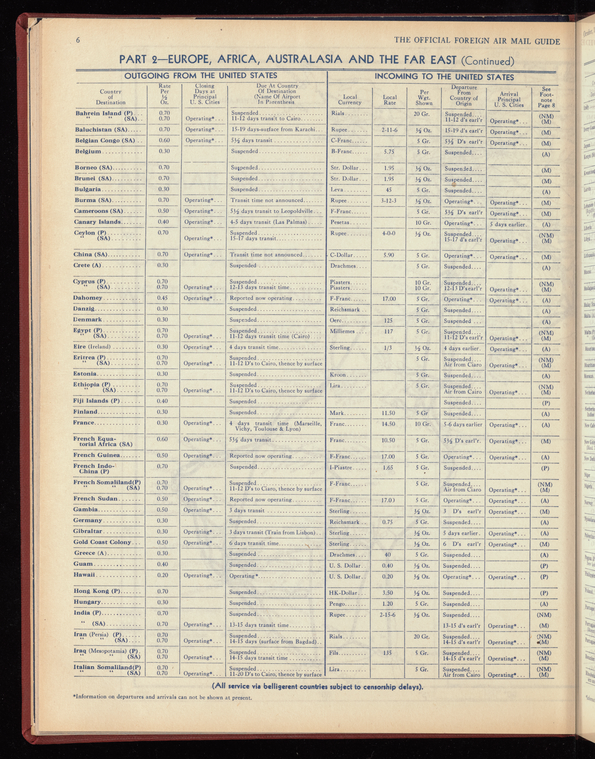 6 THE OFFICIAL FOREIGN AIR MAIL GUIDE
PART 2—EUROPE, AFRICA, AUSTRALASIA AND THE FAR EAST (Continued)
OUTGOING FROM THE UNITED STATES INCOMING TO THE UNITED STATES
Country of Destination Rate Per ½ Oz. Closing Days at Principal U. S. Cities Due At Country Of Destination (Name Of Airport In Parenthesis Local Currency Local Rate Per Wgt. Shown Departure From Country of Origin Arrival Principal U. S. Cities See Footnote Page 8
Bahrein Island (P)... 0.70 Suspended Rials 20 Gr. Suspended.... (NM)
" " (SA) 0.70 Operating*.. 11-12 days transit to Cairo 11-12 D's earl'r Operating*... (M)
Baluchistan (SA) 0.70 Operating* 15-19 days-surface from Karachi Rupee 2-11-6 ½ Oz. 15-19 d's earl'r Operating*... (M)
Belgian Congo (SA) 0.60 Operating* 5½ days transit C-Franc 5 Gr. 5½ D's earl'r Operating*... (M)
Belgium 0.30 Suspended B-Franc 5.75 5 Gr. Suspended.... (A)
Borneo (SA) 0.70 Suspended Str. Dollar 1.95 ½ Oz. Suspended.... (M)
Brunei (SA) 0.70 Suspended Str. Dollar 1.95 ½ Oz. Suspended.... (M)
Bulgaria 0.30 Suspended Leva 45 5 Gr. Suspended.... (A)
Burma (SA) 0.70 Operating* Transit time not announced Rupee 3-12-3 ½ Oz. Operating* Operating* (M)
Cameroons (SA) 0.50 Operating* 5½ days transit to Leopoldville F-Franc 5 Gr. 5½ D's earl'r Operating*... (M)
Canary Islands 0.40 Operating* 4-5 days transit (Las Palmas) Pesetas 10 Gr. Operating* 5 days earlier (A)
Ceylon (P) 0.70 Suspended Rupee 4-0-0 ½ Oz. Suspended (NM)
" (SA) Operating* 15-17 days transit 15-17 d's earl'r (M)
China (SA) 0.70 Operating* Transit time not announced C-Dollar 5.90 5 Gr. Operating* Operating* (M)
Crete (A) 0.30 Suspended Drachmes 5 Gr. Suspended (A)
Cyprus (P) 0.70 Suspended Piasters 10 Gr. Suspended (NM)
" (SA) 0.70 Operating* 12-13 days transit time Piasters 10 Gr. 12-13 D's earl'r (M)
Dahomey 0.45 Operating* Reported now operating F-Franc 17.00 5 Gr. Operating* Operating* (A)
Danzig 0.30 Suspended Reichsmark 5 Gr. Suspended (A)
Denmark 0.30 Suspended Oere 125 5 Gr. Suspended (A)
Egypt (P) 0.70 Suspended Milliemes 117 5 Gr. Suspended (NM)
" (SA) 0.70 Operating* 11-12 days transit time (Cairo) 11-12 D's earl'r Operating* (M)
Eire (Ireland) 0.30 Operating* 4 days transit time Sterling 1/3 ½ Oz 4 days earlier Operating* (A)
Eritrea (P) 0.70 Suspended 5 Gr. Suspended (NM)
" (SA) 0.70 Operating* 11-12 D's to Cairo, thence by surface Air from Cairo (M)
Estonia 0.30 Suspended Kroon 5 Gr. Suspended (A)
Ethiopia (P) 0.70 Suspended Lira 5 Gr. Suspended (NM)
" (SA) 0.70 Operating* 11-12 D's to Cairo, thence by surface Air from Cairo Operating* (M)
Fiji Islands (P) 0.40 Suspended Suspended (P)
Finland 0.30 Suspended Mark 11.50 5 Gr Suspended (A)
France 0.30 Operating* 4 days transit time (Marseille, Franc 14.50 10 Gr. 5-6 days earlier Operating* (A)
Vichy, Toulouse & Lyon)
French Equa- 0.60 Operating* 5½ days transit Franc 10.50 5 Gr. 5½ D's earl'r. Operating* (M)
torial Africa (SA)
French Guinea 0.50 Operating* Reported now operating F-Franc 17.00 5 Gr. Operating* Operating* (A)
French Indo- 0.70 Suspended I-Piastre 1.65 5 Gr. Suspended (P)
China (P)
French Somaliland(P) 0.70 Suspended F-Franc 5 Gr. Suspended (NM)
" " (SA) 0.70 Operating* 11-12 D's to Ciaro, thence by surface Air from Ciaro Operating* (M)
French Sudan 0.50 Operating* Reported now operating F-Franc 17.03 5 Gr. Operating* Operating* (A)
Gambia 0.50 Operating* 3 days transit Sterling ½ Oz. 3 D's earl'r Operating* (M)
Germany 0.30 Suspended Reichsmark 0.75 5 Gr. Suspended (A)
Gibraltar 0.30 Operating* 7 days transit (Train from Lisbon) Sterling ½ Oz. 5 days earlier Operating* (A)
Gold Coast Colony 0.50 Operating* 6 days transit time Sterling ½ Oz. 6 D's earl'r Operating* (M)
Greece (A) 0.30 Suspended Drachmes 40 5 Gr. Suspended (A)
Guam 0.40 Suspended U. S. Dollar 0.40 ½ Oz. Suspended (P)
Hawaii 0.20 Operating* Operating* U. S. Dollar 0.20 ½ Oz. Operating* Operating* (P)
Hong Kong (P) 0.70 Suspended HK-Dollar 3.50 ½ Oz. Suspended (P)
Hungary 0.30 Suspended Pengo 1.20 5 Gr. Suspended (A)
India (P) 0.70 Suspended Rupee 2-15-6 ½ Oz. Suspended (NM)
" (SA) 0.70 Operating* 13-15 days transit time 13-15 d's earl'r Operating* (M)
Iran (Persia) (P) 0.70 Suspended Rials 20 Gr. Suspended (NM)
" " (SA) 0.70 Operating* 14-15 days (surface from Bagdad) 14-15 d's earl'r Operating* (M)
Iraq (Mesopotamia) (P) 0.70 Suspended Fils 135 5 Gr. Suspended (NM)
" " (SA) 0.70 Operating* 14-15 days transit time 14-15 d's earl'r Operating* (M)
Italian Somaliland(P) 0.70 Suspended Lira 5 Gr. Suspended (NM)
" " (SA) 0.70 Operating* 11-20 D's to Cairo, thence by surface Air from Ciaro Operating* (M)
(All service via belligerent countries subject to censorship delays).
*Information on departures and arrivals can not be shown at present.